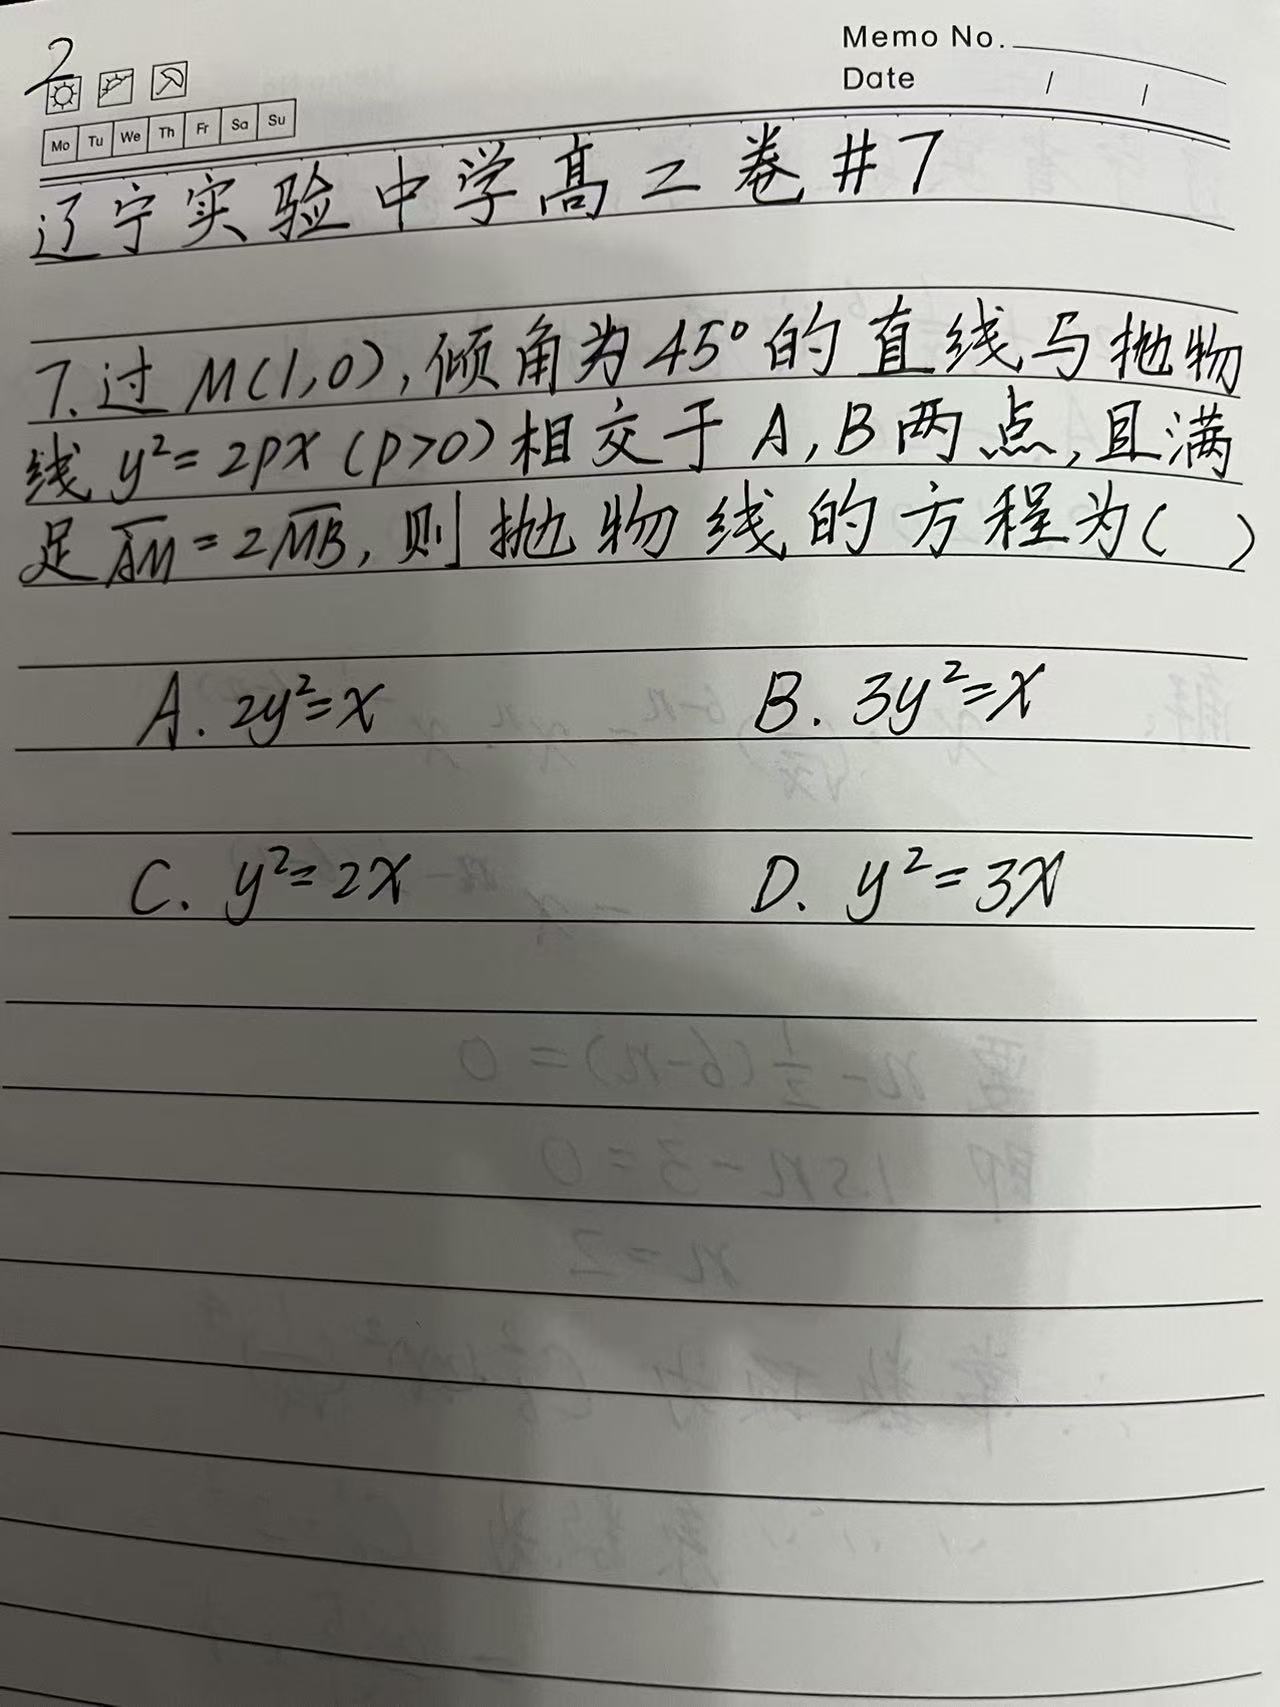 2
Memo No.
Date / /
Mo Tu We Th Fr Sa Su
辽宁实验中学高二卷#7
7.过M(1,0),倾角为45°的直线与抛物
线y²=2px(p>0)相交于A,B两点,且满
足AM=2MB,则抛物线的方程为( )
A. 2y²=x B. 3y²=x
C. y²=2x D. y²=3x